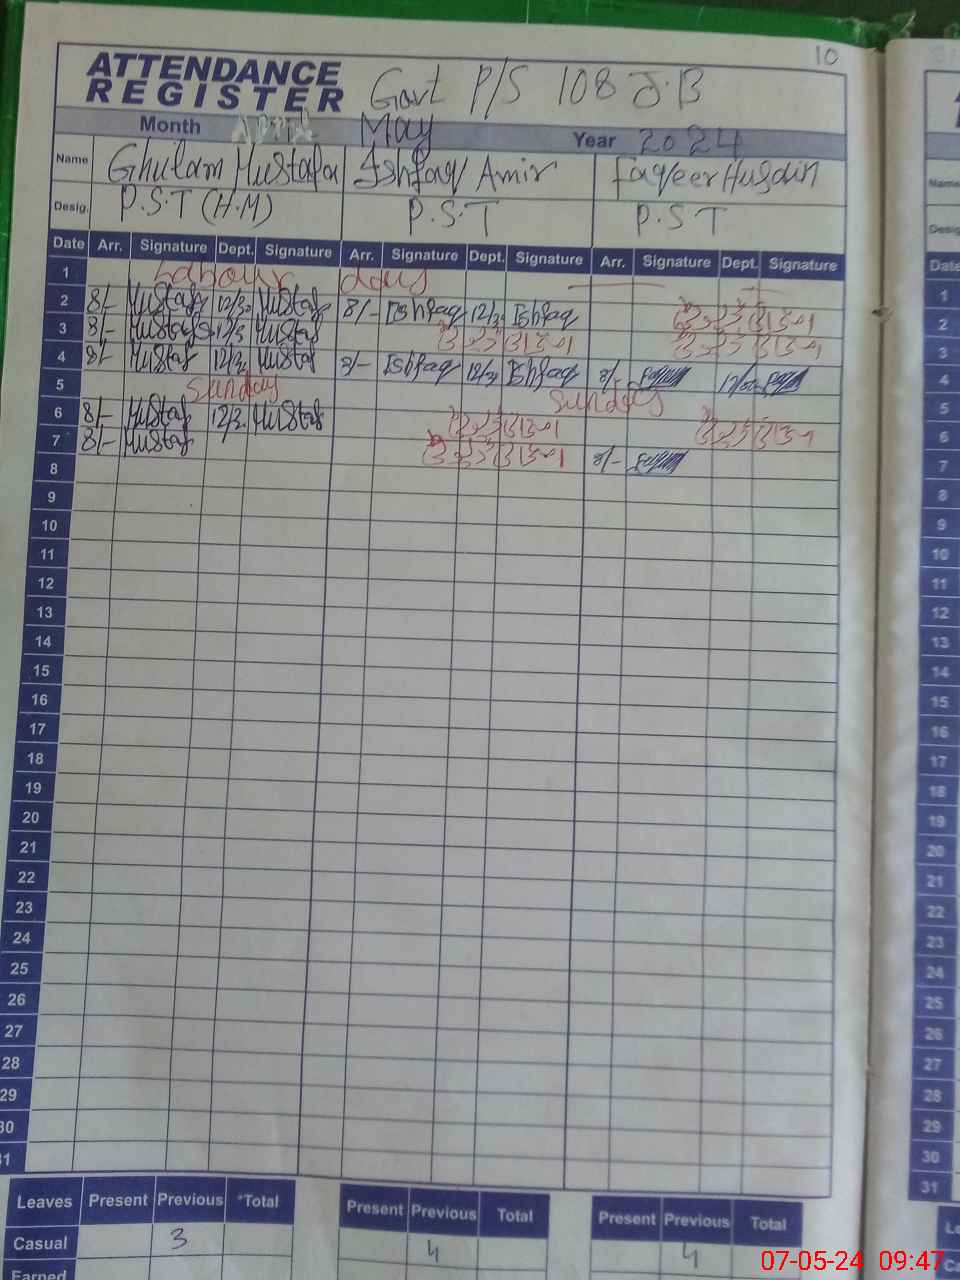 10
ATTENDANCE REGISTER Govt P/S 108 J.B
Month May Year 2024
Name Ghulam Mustafa Ishfaq Amir Faqeer Husain
Desig. P.S.T (H.M) P.S.T P.S.T
Date Arr. Signature Dept. Signature Arr. Signature Dept. Signature Arr. Signature Dept. Signature
1 Labour days
2 8/- Mustafa 12/30 Mustafa 8/- Ishfaq 12/30 Ishfaq
3 8/- Mustafa 12/30 Mustafa
4 8/- Mustaf 12/30 Mustaf 8/- Ishfaq 12/30 Ishfaq 8/- 12/30
5 Sunday Sunday
6 8/- Mustaf 12/30 Mustaf
7 8/- Mustaf 8/-
8
9
10
11
12
13
14
15
16
17
18
19
20
21
22
23
24
25
26
27
28
29
30
31
Leaves Present Previous *Total Present Previous Total Present Previous Total
Casual 3 4 4
Earned
Name
Desig
Date
1
2
3
4
5
6
7
8
9
10
11
12
13
14
15
16
17
18
19
20
21
22
23
24
25
26
27
28
29
30
31
07-05-24 09:47